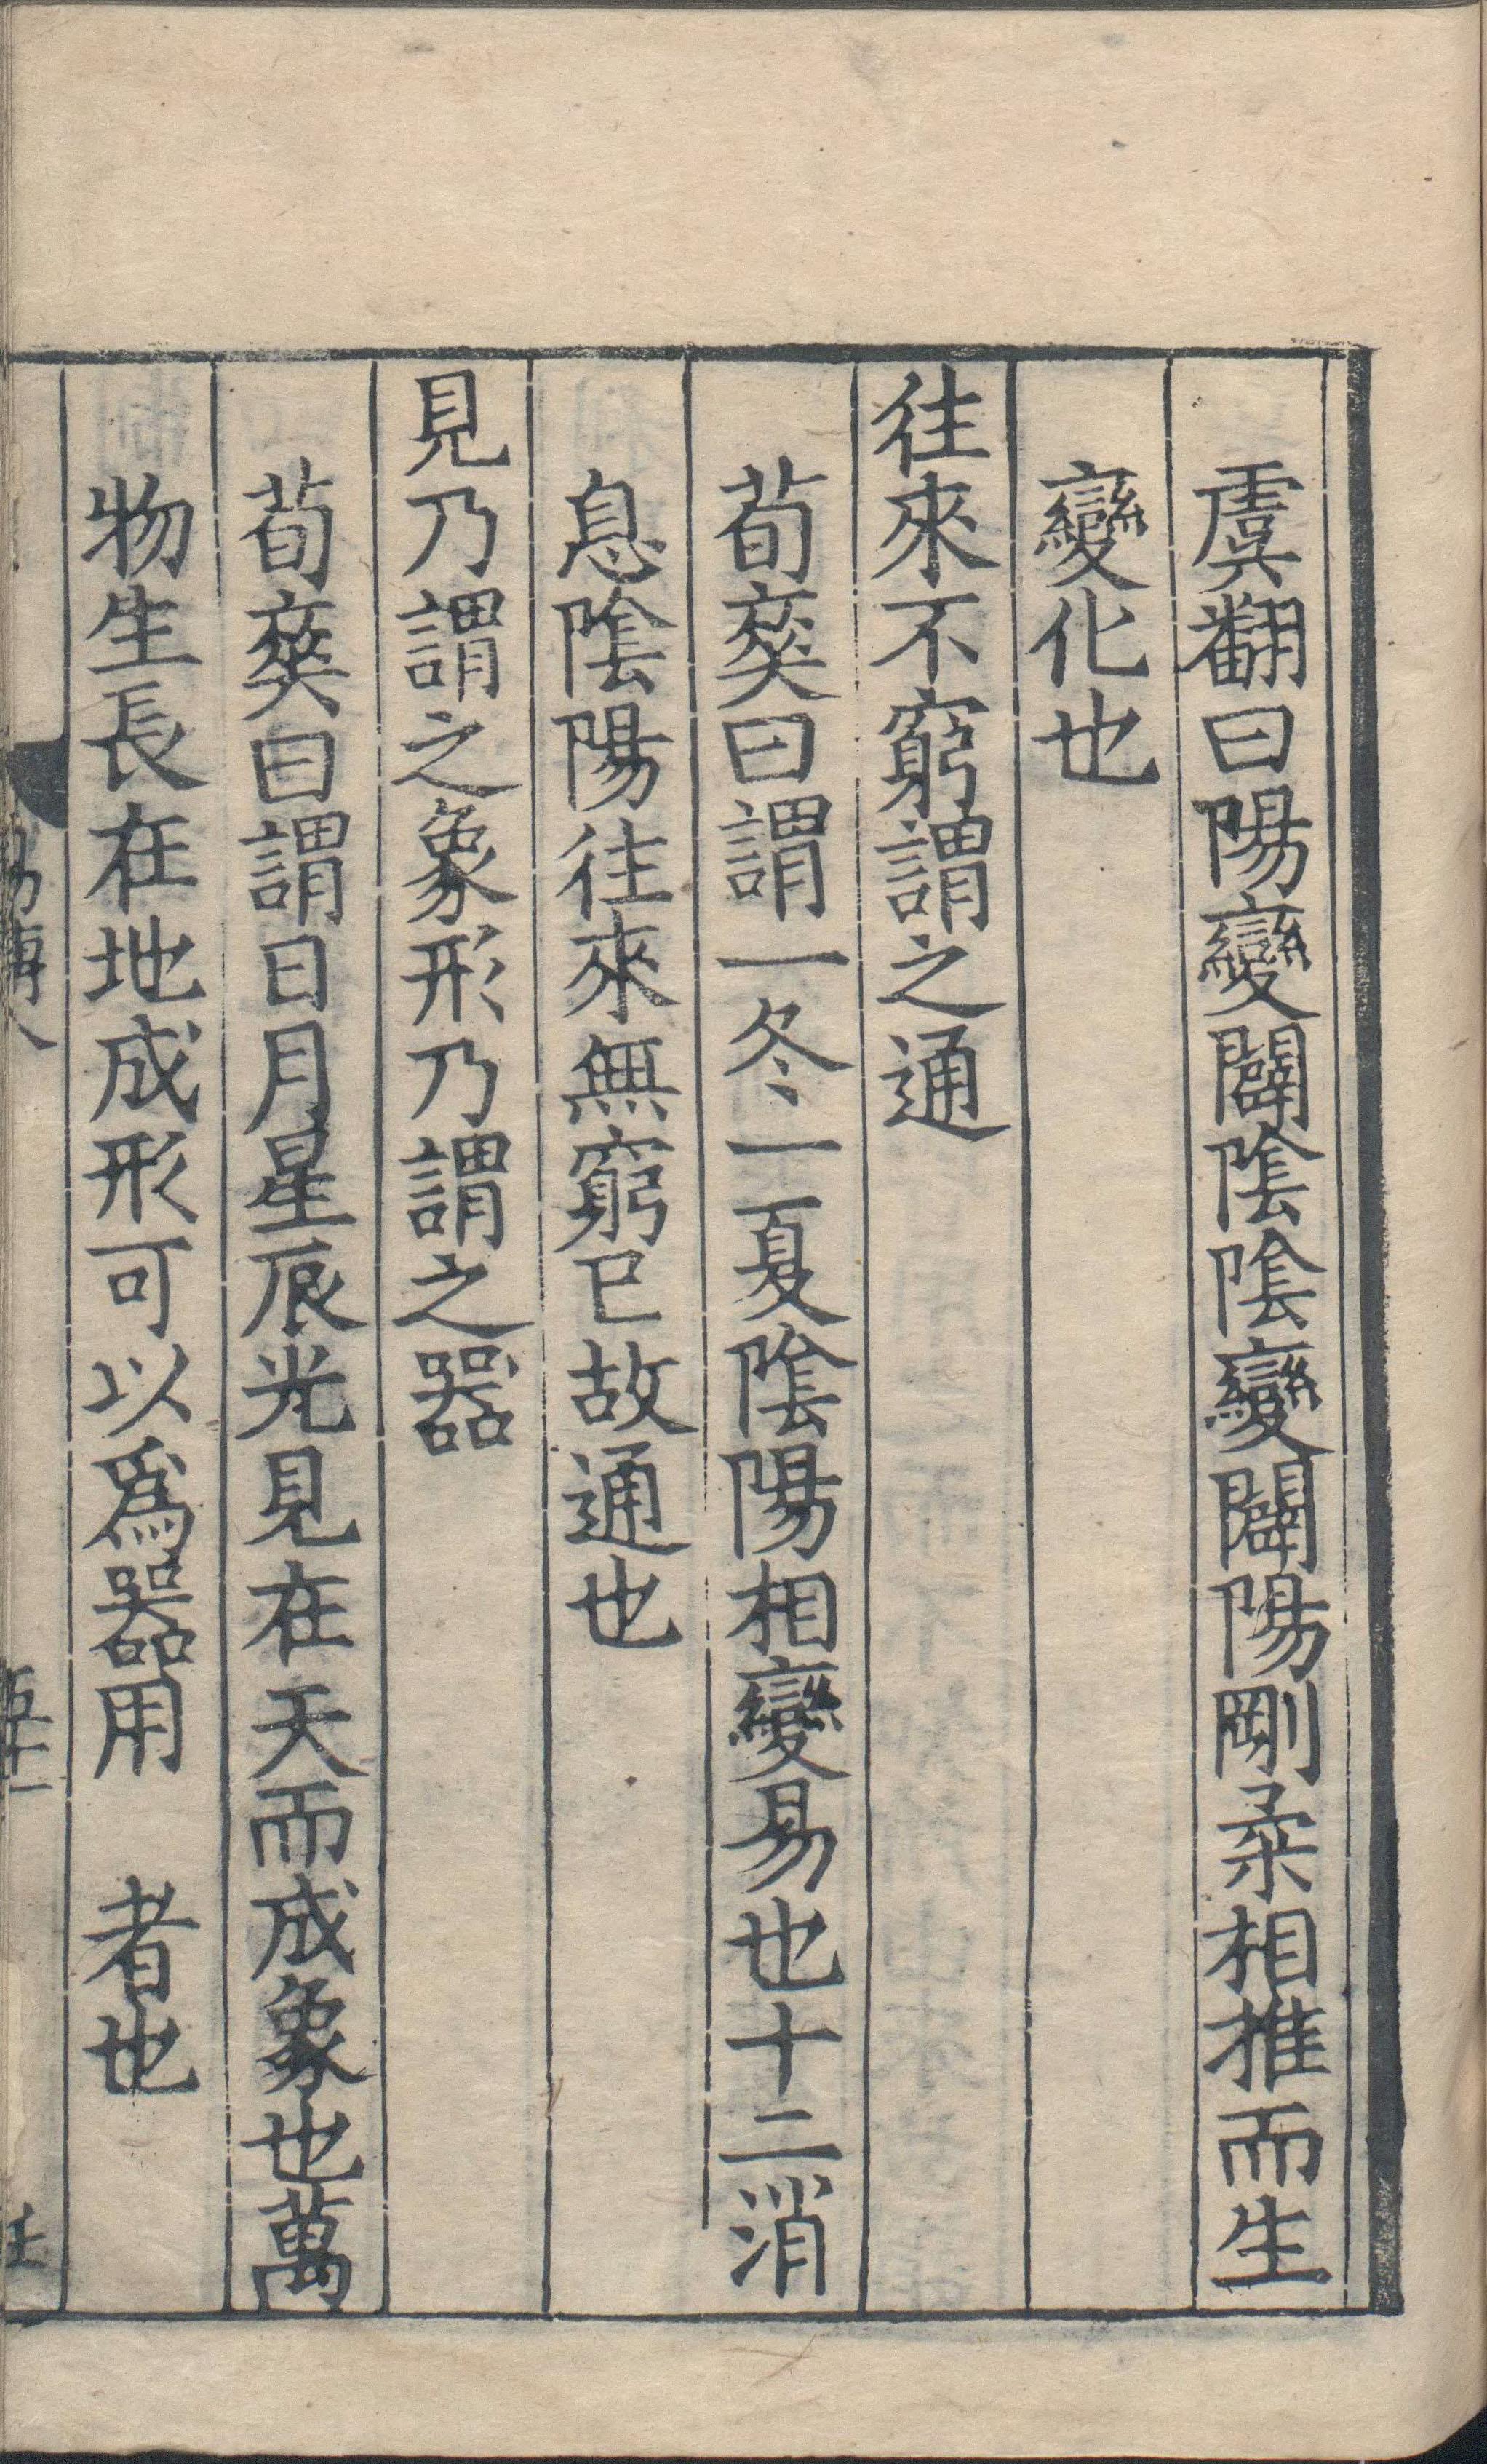 虞翻曰陽變闢陰陰變闢陽剛柔相推而生
變化也
往來不窮謂之通
荀爽曰謂一冬一夏陰陽相變易也十二消
息陰陽往來無窮已故通也
見乃謂之象形乃謂之器
荀爽曰謂日月星辰光見在天而成象也萬
物生長在地成形可以爲器用　者也